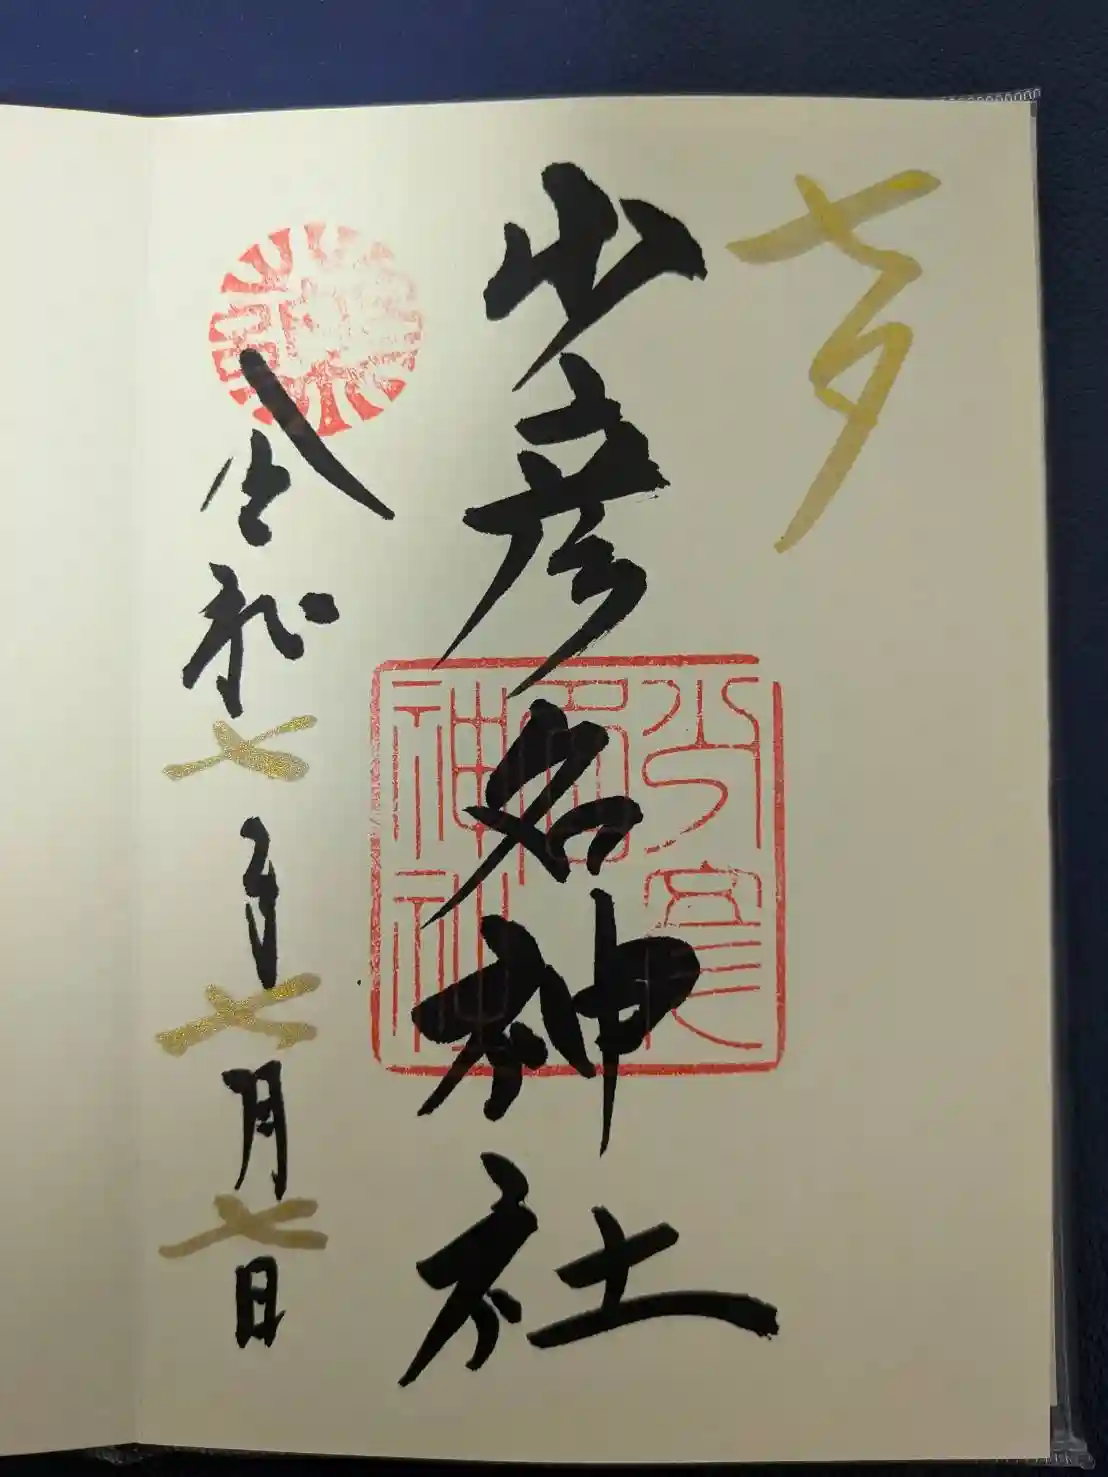 七夕
少彦名神社
少彦名神社
令和七年七月七日